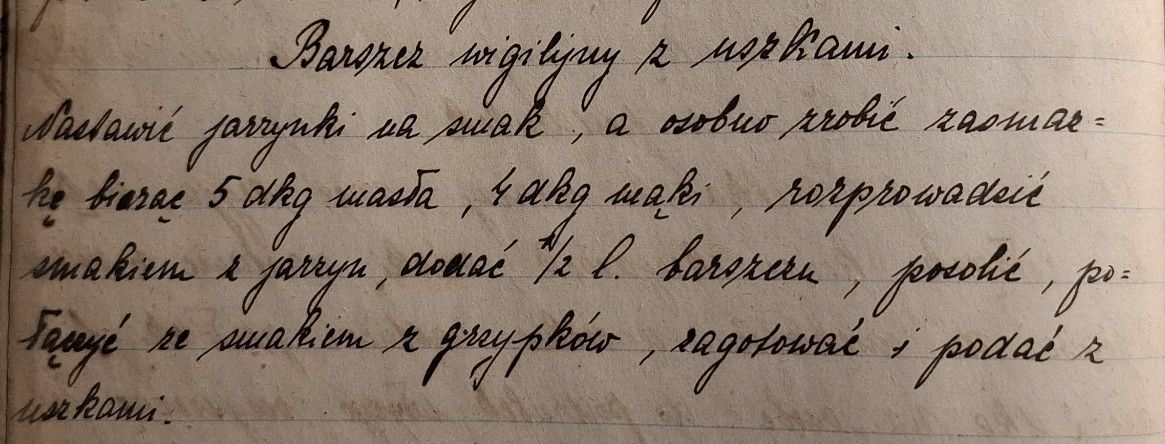 Barszcz wigilijny z uszkami.
Nastawić jarzynki na smak, a osobno zrobić zasmaż=
kę biorąc 5 dkg masła, 4 dkg mąki, rozprowadzić
smakiem z jarzyn, dodać 1/2 l. barszczu, posolić, po=
łączyć ze smakiem z grzypków, zagotować i podać z
uszkami.